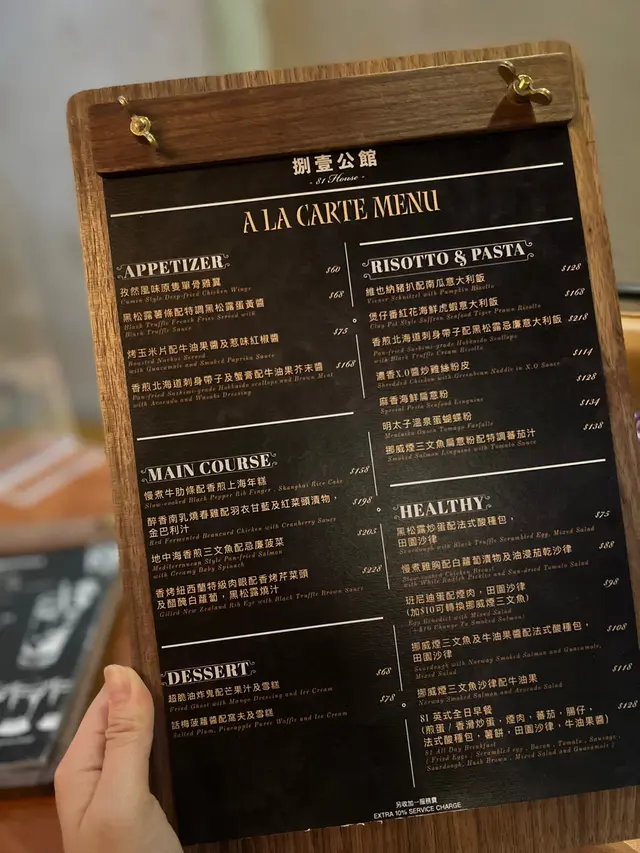 捌壹公館
- 81 House -
A LA CARTE MENU
APPETIZER
孜然風味原隻單骨雞翼 $60
Cumin Style Deep-fried Chicken Wings
黑松露薯條配特調黑松露蛋黃醬 $68
Black Truffle French Fries Served with
Black Truffle Sauce
烤玉米片配牛油果醬及惹味紅椒醬 $75
Roasted Nachos Served
with Guacamole and Smoked Paprika Sauce
香煎北海道刺身帶子及蟹膏配牛油果芥末醬 $168
Pan-fried Sashimi-grade Hokkaido Scallops and Brown Meat
with Avocado and Wasabi Dressing
MAIN COURSE
慢煮牛肋條配香煎上海年糕 $158
Slow-cooked Black Pepper Rib Finger, Shanghai Rice Cake
醉香南乳燒春雞配羽衣甘藍及紅菜頭漬物, $198
金巴利汁
Red Fermented Beancurd Chicken with Cranberry Sauce
地中海香煎三文魚配忌廉菠菜 $205
Mediterranean Style Pan-fried Salmon
with Creamy Baby Spinach
香烤紐西蘭特級肉眼配香烤芹菜頭 $228
及醋醃白蘿蔔,黑松露燒汁
Gilled New Zealand Rib Eye with Black Truffle Brown Sauce
DESSERT
超脆油炸鬼配芒果汁及雪糕 $68
Fried Ghost with Mango Dressing and Ice Cream
話梅菠蘿醬配窩夫及雪糕 $78
Salted Plum, Pineapple Puree Waffle and Ice Cream
RISOTTO & PASTA
維也納豬扒配南瓜意大利飯 $128
Viener Schnitzel with Pumpkin Risotto
煲仔番紅花海鮮虎蝦意大利飯 $168
Clay Pot Style Saffron Seafood Tiger Prawn Risotto
香煎北海道刺身帶子配黑松露忌廉意大利飯 $218
Pan-fried Sashimi-grade Hokkaido Scallops
with Black Truffle Cream Risotto
濃香X.O醬炒雞絲粉皮 $114
Shredded Chicken with Greenbean Noddle in X.O Sauce
麻香海鮮扁意粉 $128
Special Pesto Seafood Linguine
明太子溫泉蛋蝴蝶粉 $134
Mentaiko Onsen Tamago Farfalle
挪威煙三文魚扁意粉配特調蕃茄汁 $138
Smoked Salmon Linguine with Tomato Sauce
HEALTHY
黑松露炒蛋配法式酸種包, $75
田園沙律
Sourdough with Black Truffle Scrambled Egg, Mixed Salad
慢煮雞胸配白蘿蔔漬物及油浸茄乾沙律 $88
Slow-cooked Chicken Breast
with White Radish Pickles and Sun-dried Tomato Salad
班尼迪蛋配煙肉,田園沙律 $98
(加$10可轉換挪威三文魚)
Egg Benedict with Mixed Salad
(+$10 Change To Smoked Salmon)
挪威煙三文魚及牛油果醬配法式酸種包, $108
田園沙律
Sourdough with Norway Smoked Salmon and Guacamole,
Mixed Salad
挪威煙三文魚沙律配牛油果 $118
Norway Salmon and Avocado Salad
81 英式全日早餐 $128
(煎蛋 / 香滑炒蛋,煙肉,蕃茄,腸仔,
法式酸種包,薯餅,田園沙律,牛油果醬)
81 All Day Breakfast
( Fried Eggs / Scrambled egg , Bacon , Tomato , Sausage ,
Sourdough, Hash Brown , Mixed Salad and Guacamole )
另收加一服務費
EXTRA 10% SERVICE CHARGE